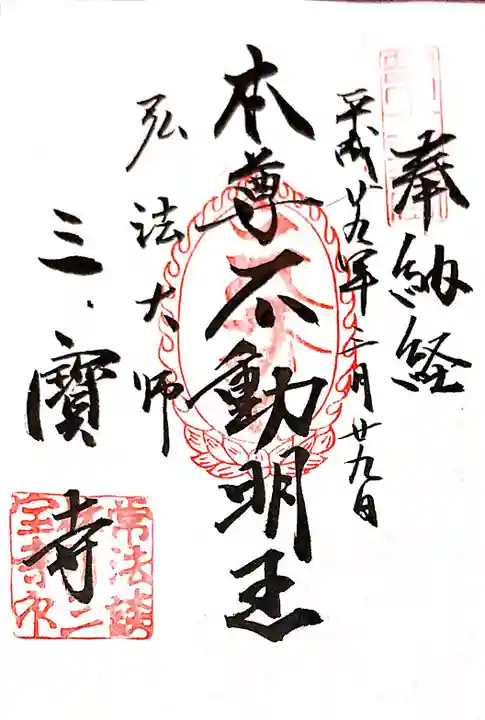 奉納経
平成廿九年三月廿九日
本尊不動明王
弘法大师
三寶寺